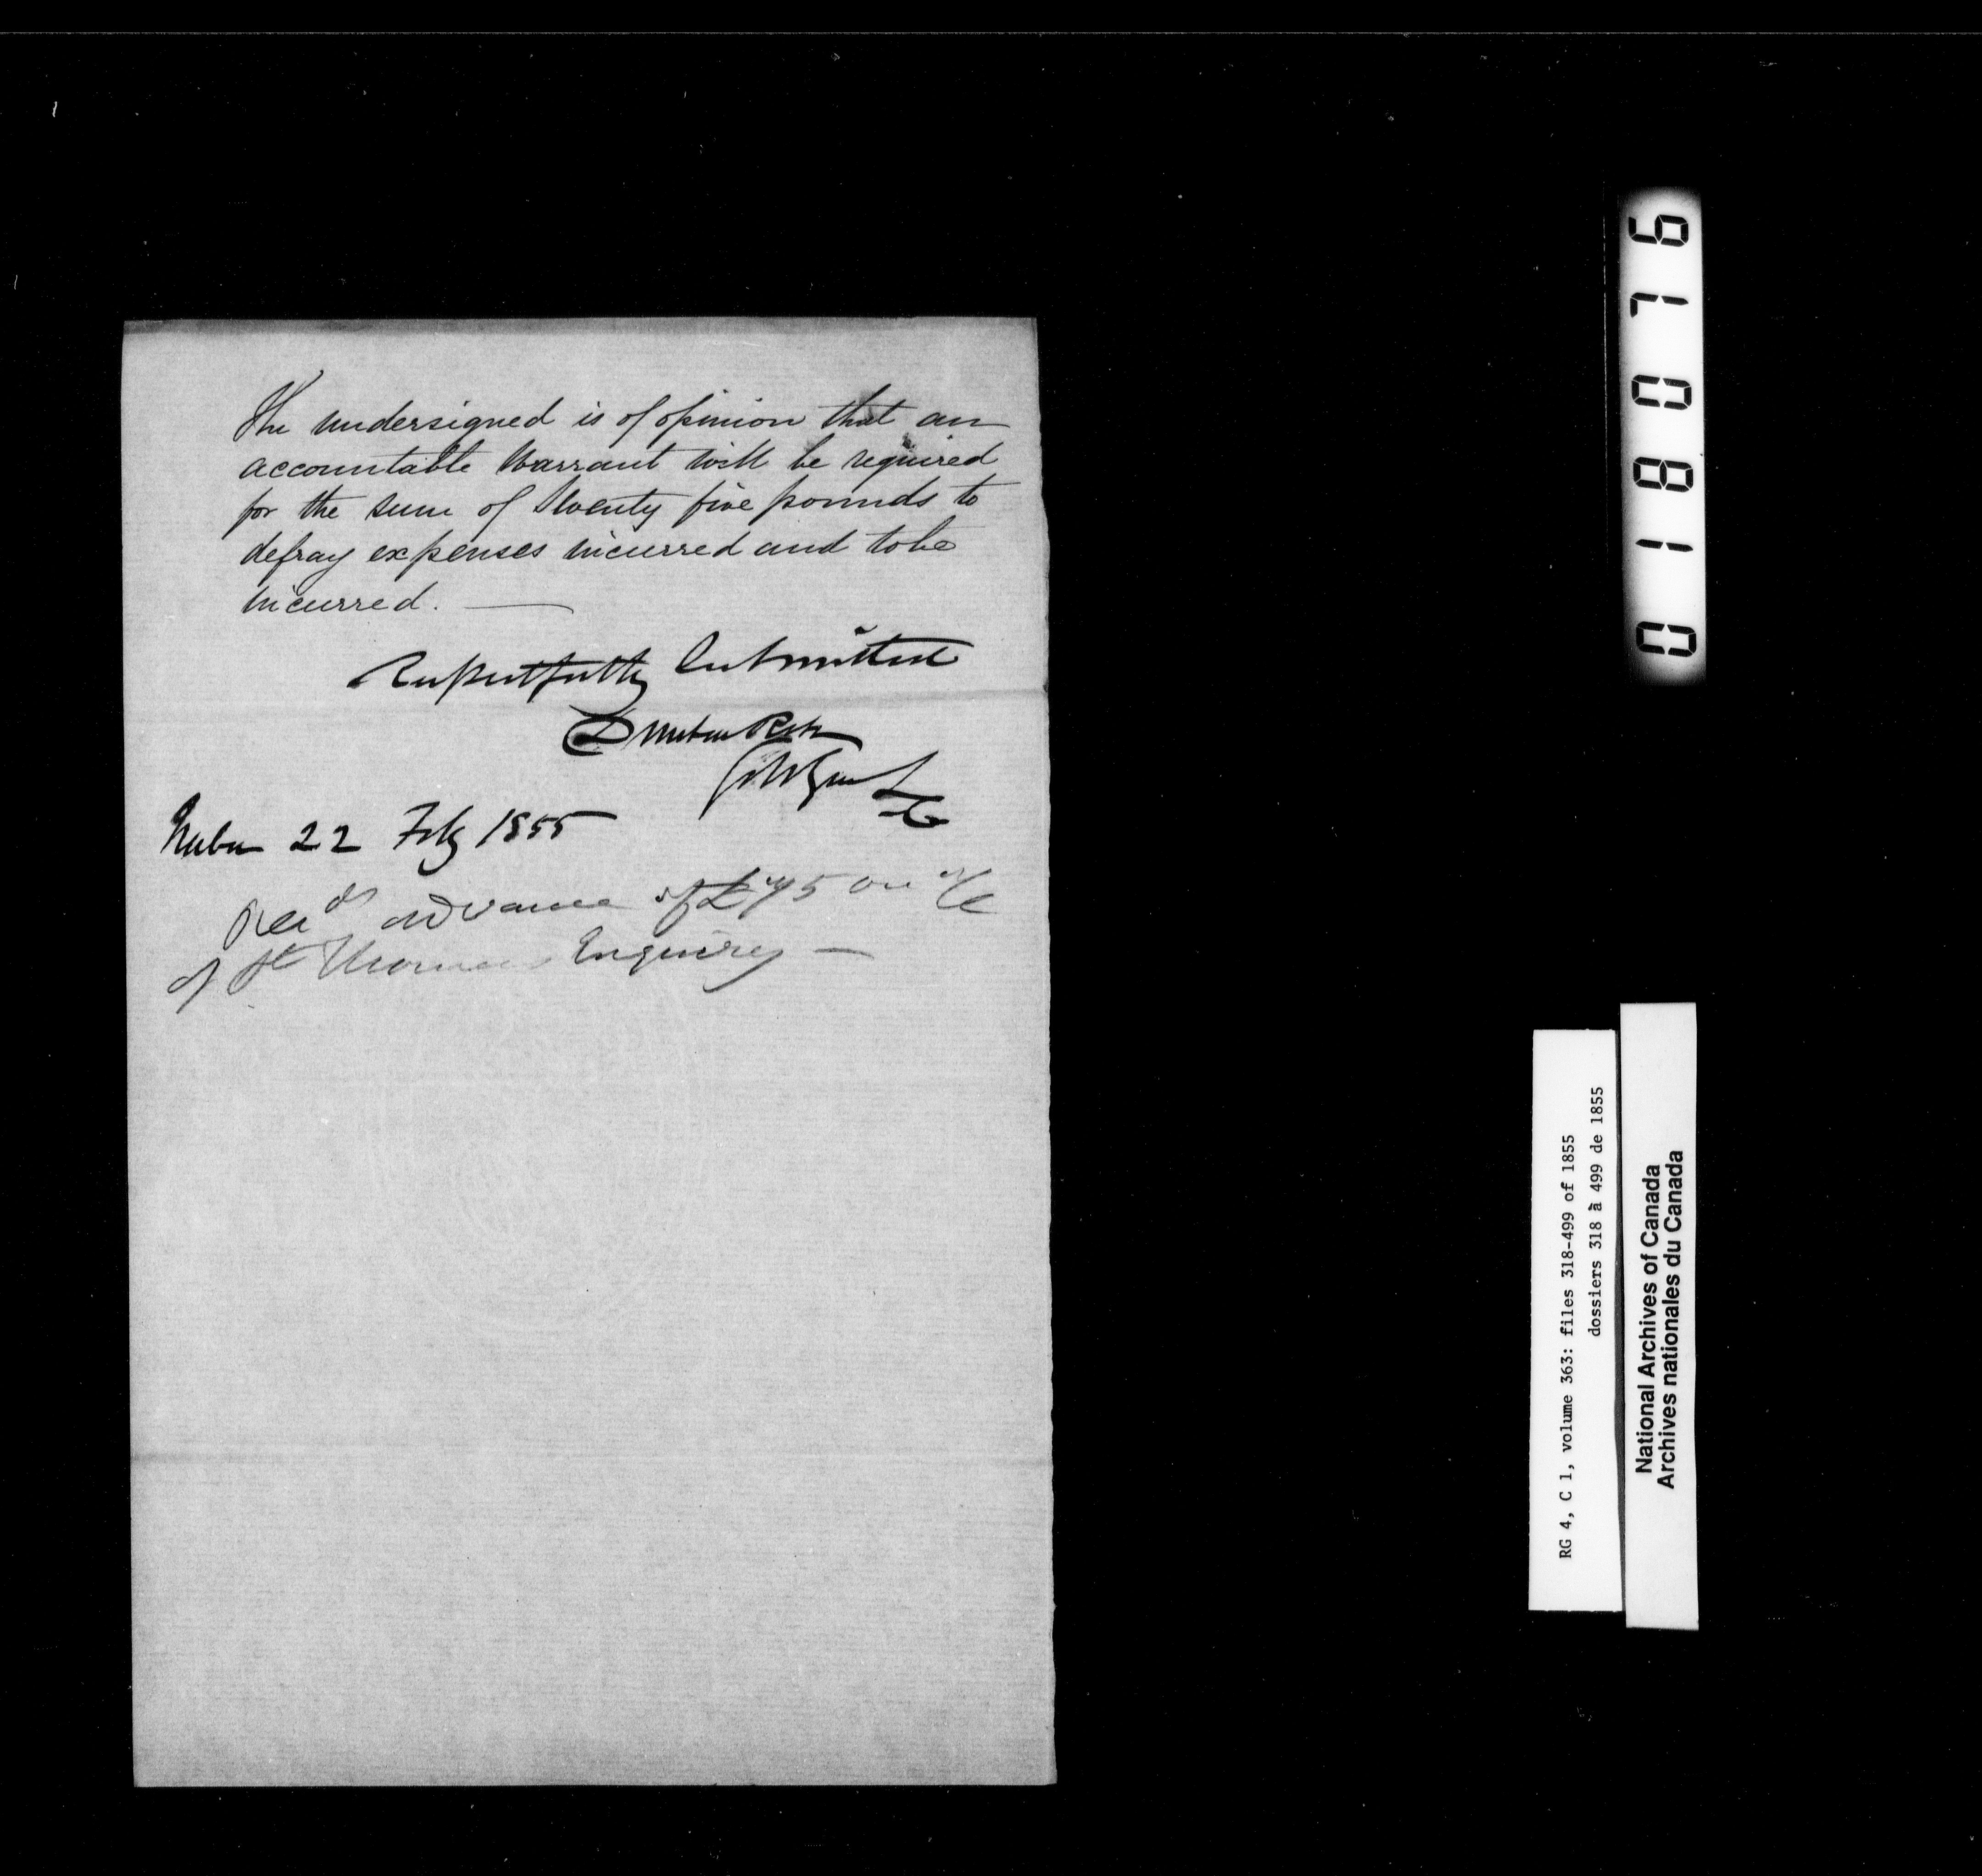 The undersigned is of opinion that an
accountable Warrant will be required
for the sum of Twenty five pounds to
defray expenses incurred and to be
incurred.
Respectfully Submitted
Quebec 22 Feby 1855
advance of £ on a/c
of St Thomas Enquiry —
018076
RG 4, C 1, volume 363: files 318-499 of 1855
dossiers 318 à 499 de 1855
National Archives of Canada
Archives nationales du Canada